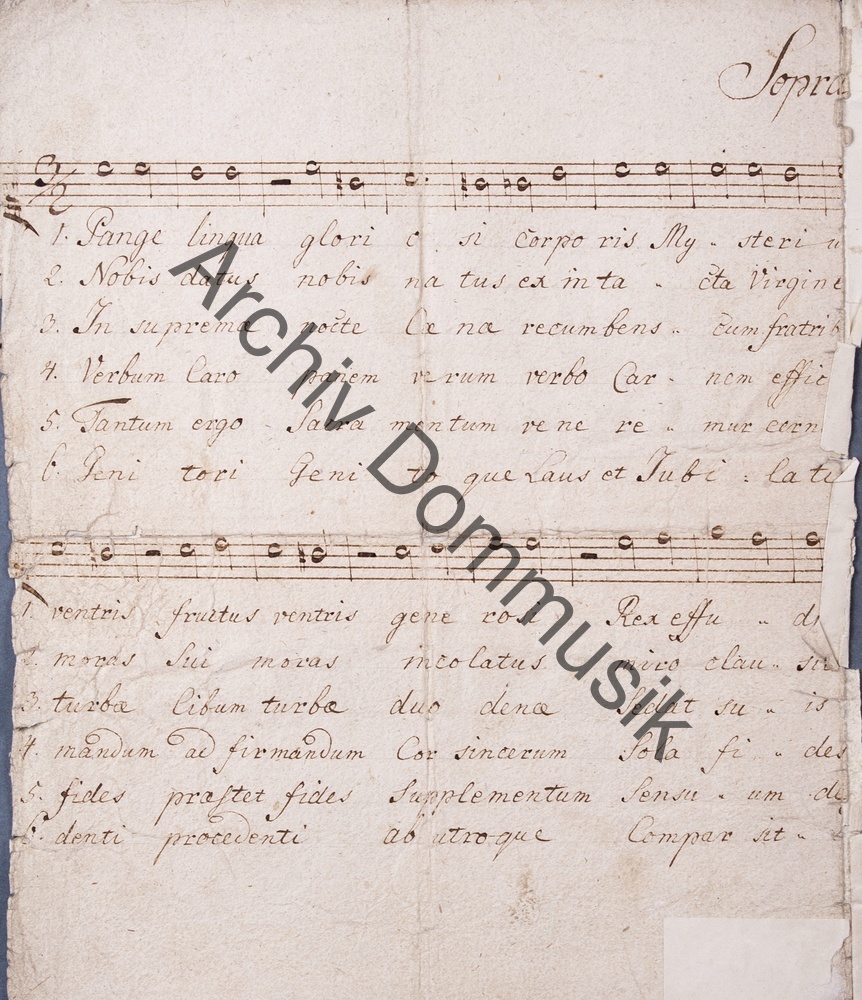 Sopra
3/2
1. Pange lingua glori o si Corpo ris My - steri u
2. Nobis datus nobis na tus ex in ta - cta Virgine
3. In supremæ nocte Cæ næ recumbens - Cum fratrib
4. Verbum Caro panem verum verbo Car - nem effic
5. Tantum ergo - Sacra mentum vene re - mur cern
6. Geni tori Geni to que Laus et Jubi - la ti
1. ventris fructus ventris gene rosi Rex effu - di
2. moras Sui moras incolatus miro clau - su
3. turbæ Cibum turbæ duo denæ Sedat su - is
4. mandum ad firmandum Cor sincerum Sola fi - des
5. fides præstet fides Supplementum Sensu - um de
6. denti procedenti ab utroque Compar sit -
Archiv Dommusik